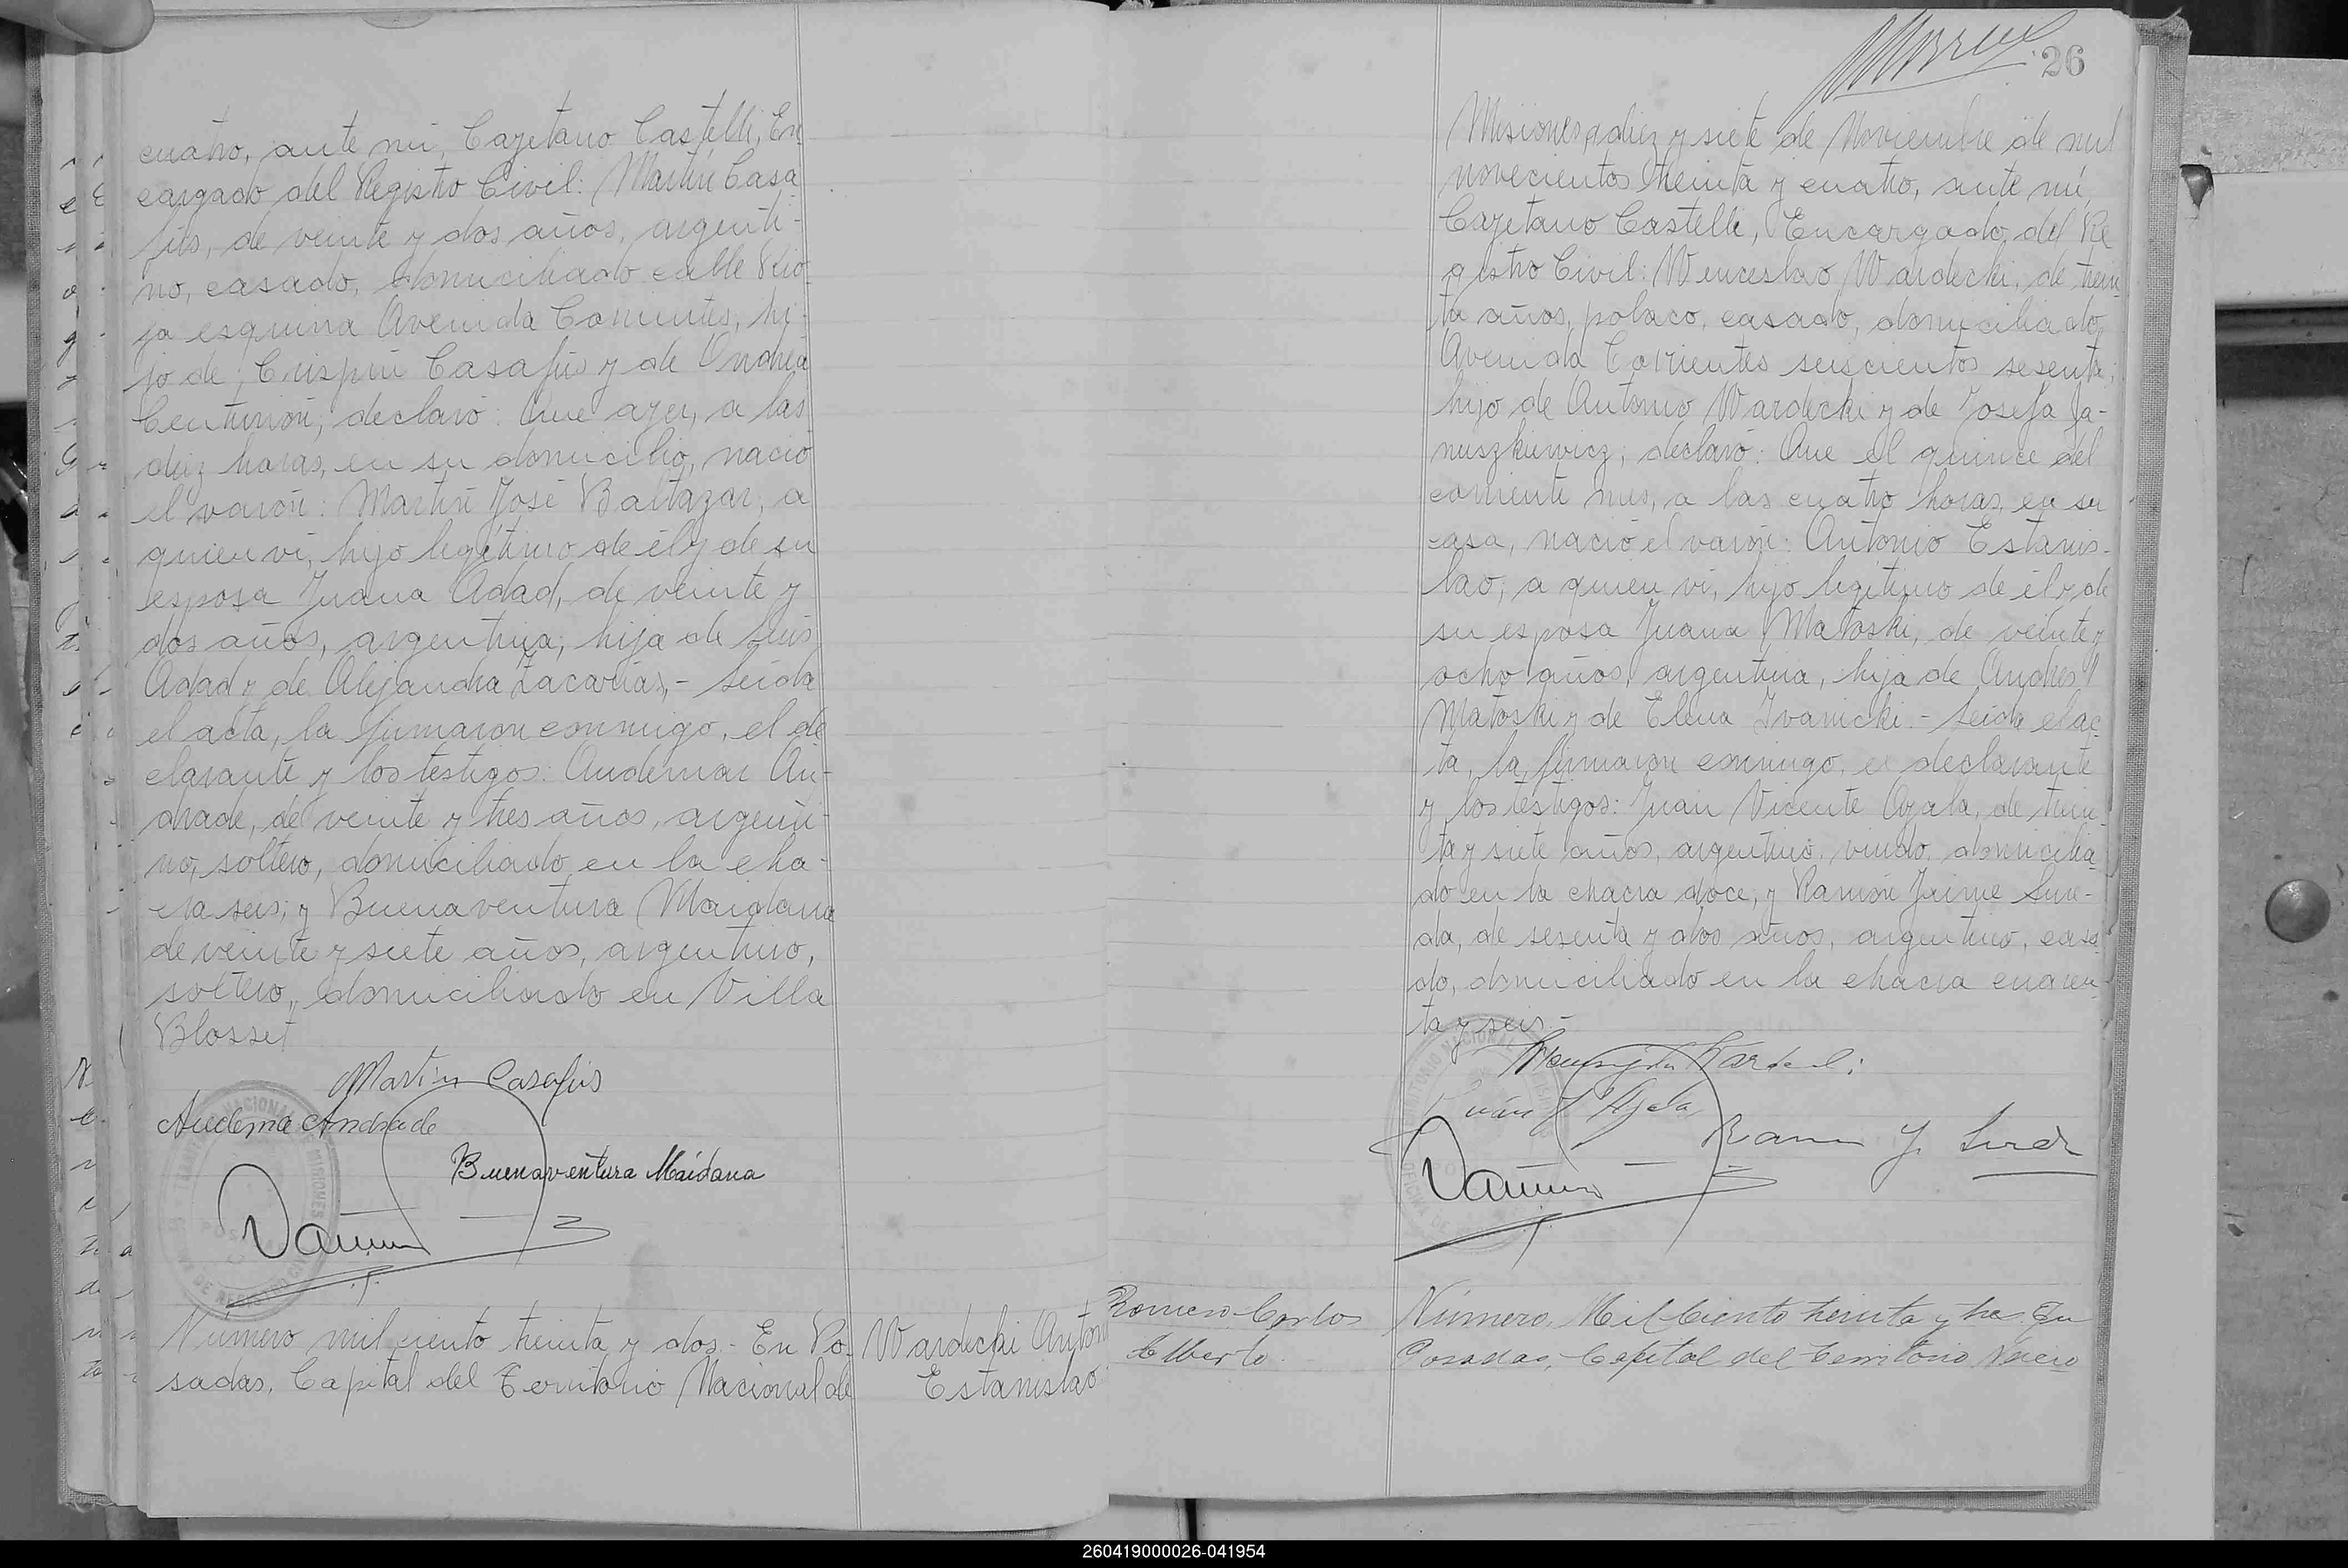 cuatro, ante mí, Cayetano Castelli, En
cargado del Registro Civil: Martín Casa
fús, de veinte y dos años, argenti-
no, casado, domiciliado calle Rio-
ja esquina Avenida Corrientes, hi-
jo de Crispín Casafús y de Andrea
Centurión; declaró: Que ayer, a las
diez horas, en su domicilio, nació
el varón: Martín José Baltazar, a
quien vi, hijo legítimo de él y de su
esposa Juana Adad, de veinte y
dos años, argentina, hija de Luis
Adad y de Alejandra Zacarías.- Leída
el acta, la firmaron conmigo, el de
clarante y los testigos: Audemar An-
drade, de veinte y tres años, argenti-
no, soltero, domiciliado en la cha-
cra seis; y Buenaventura Maidana
de veinte y siete años, argentino,
soltero, domiciliado en Villa
Blosset
Martin Casafús
Audema Andrade
Buenaventura Maidana
Número mil ciento treinta y dos.- En Po-
sadas, Capital del Territorio Nacional de
Wardecki Anton
Estanislao
26
Misiones, a diez y siete de Noviembre de mil
novecientos treinta y cuatro, ante mí,
Cayetano Castelli, Encargado del Re
gistro Civil: Wenceslao Wardecki, de trein
ta años, polaco, casado, domiciliado
Avenida Corrientes seiscientos sesenta;
hijo de Antonio Wardecki y de Josefa Ja-
nuszkiewicz; declaró: Que el quince del
corriente mes, a las cuatro horas, en su
casa, nació el varón: Antonio Estanis-
lao; a quien vi, hijo legítimo de él y de
su esposa Juana Matoski, de veinte y
ocho años, argentina, hija de Andrés
Matoski y de Elena Ivanicki.- Leída el ac
ta, la firmaron conmigo, el declarante
y los testigos: Juan Vicente Ayala, de trein-
ta y siete años, argentino, viudo, domicilia
do en la chacra doce; y Ramón Jaime Lure-
da, de sesenta y dos años, argentino, casa
do, domiciliado en la chacra cuaren-
ta y seis.-
Juan V Ayala
Ramon J.
Romero Carlos
Alberto.
Número, Mil Ciento treinta y tres. En
Posadas, Capital del Territorio Nacio
260419000026-041954